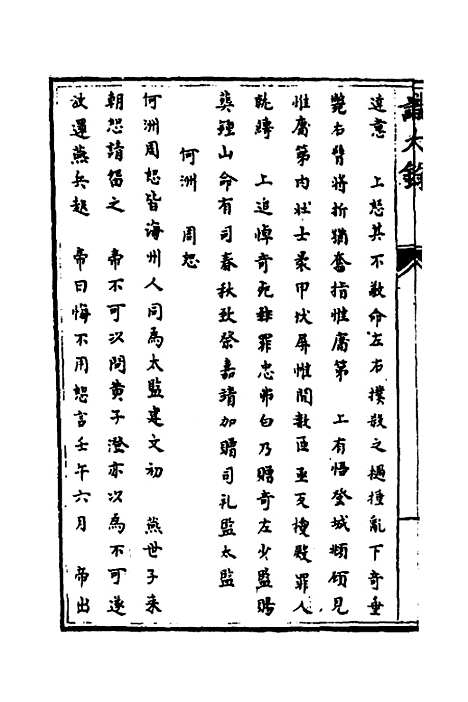 達意　上怒其不敬命左右撲殺之檛捶亂下奇垂
斃右臂將折猶奮指惟庸第　上有悟登城頫顧見
惟庸第内壯士衷甲伏屏惟間數匝亟反棲殿罪人
就縛　上追悼奇死非罪忠弗白乃贈奇左少監賜
葬鍾山命有司春秋致祭嘉靖加贈司礼監太監
何洲　周恕
何洲周恕皆海州人同為太監建文初　燕世子来
朝恕請留之　帝不可以問黄子澄亦以為不可遂
放還燕兵起　帝曰悔不用恕言壬午六月　帝出